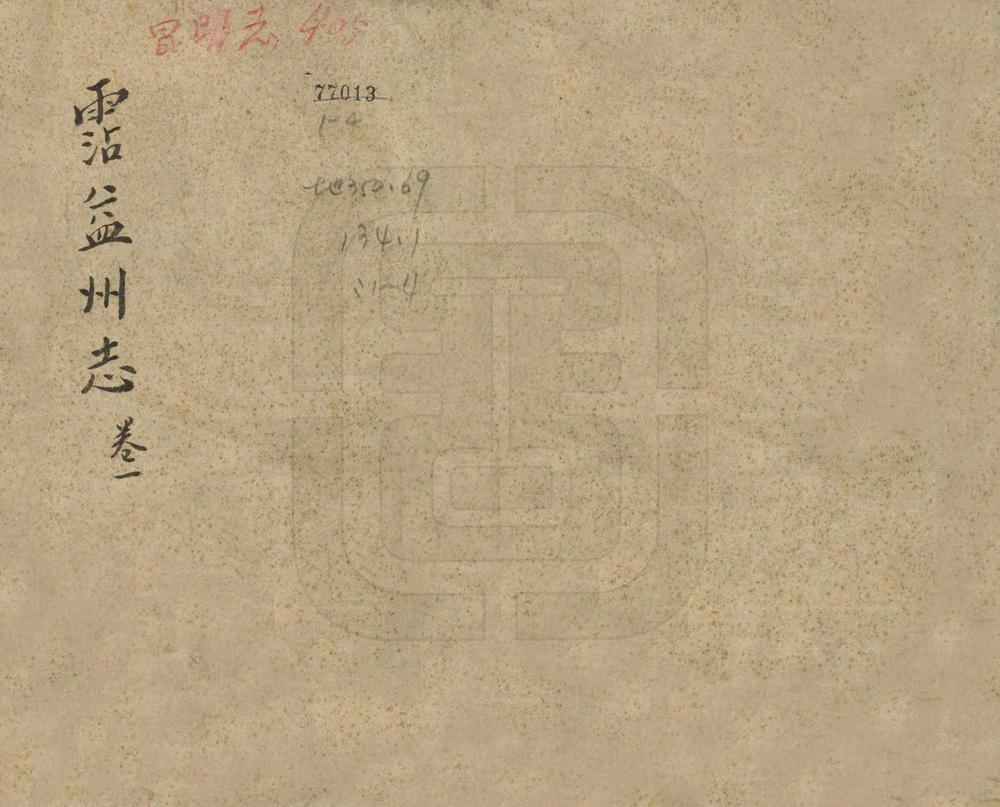 昆明志 405
霑益州志
卷一
77013
1-4
地350.69
134.1
:1-4